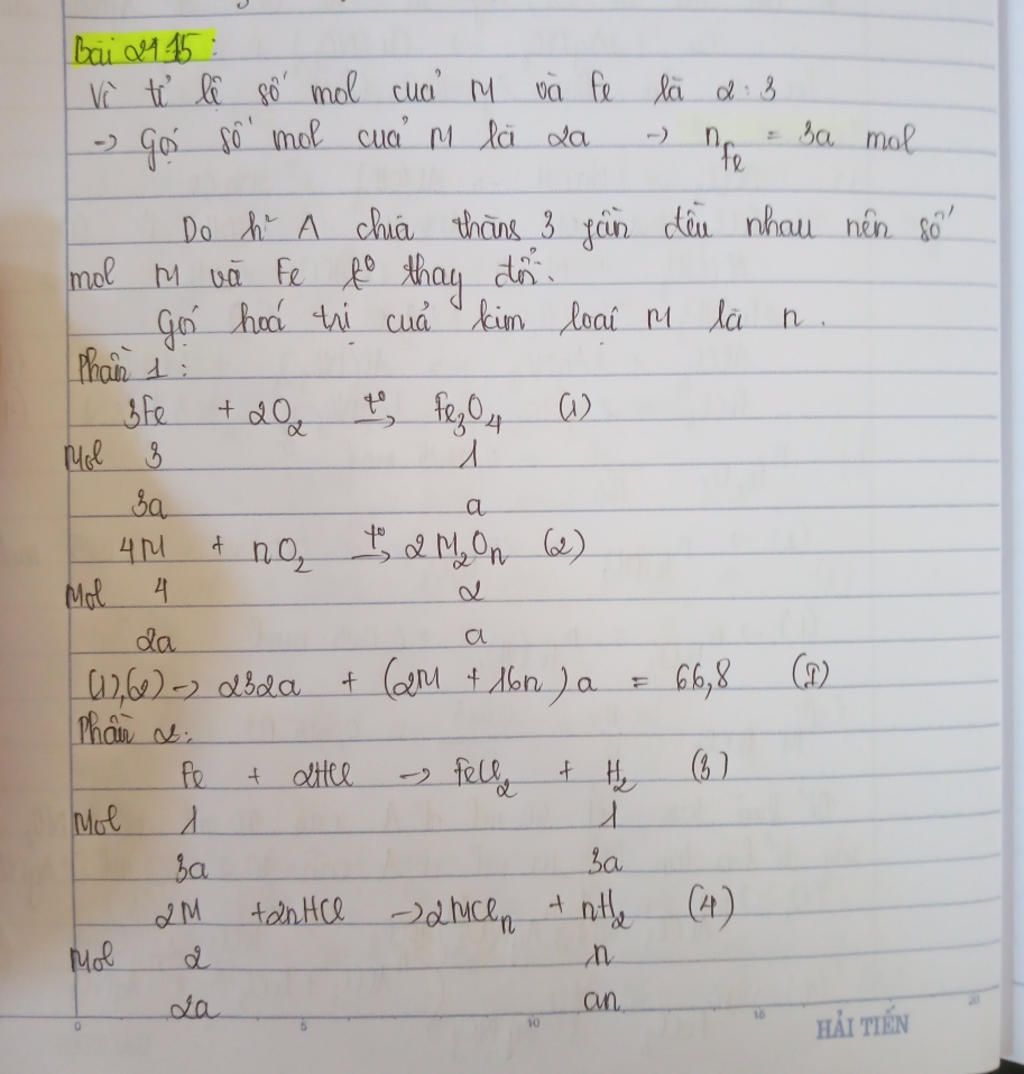 Bài 21.15:
Vì tỉ lệ số mol của M và Fe là 2:3
→ Gọi số mol của M là 2a → nFe = 3a mol
Do h² A chia thành 3 phần đều nhau nên số
mol M và Fe k⁰ thay đổi.
Gọi hoá trị của kim loại M là n.
Phần 1:
3Fe + 2O₂ t⁰→ Fe₃O₄ (1)
Mol 3 1
3a a
4M + nO₂ t⁰→ 2M₂Oₙ (2)
Mol 4 2
2a a
(1),(2) → 232a + (2M + 16n)a = 66,8 (I)
Phần 2:
Fe + 2HCl → FeCl₂ + H₂ (3)
Mol 1 1
3a 3a
2M + 2nHCl → 2MClₙ + nH₂ (4)
Mol 2 n
2a an
0 5 10 15 20
HẢI TIẾN